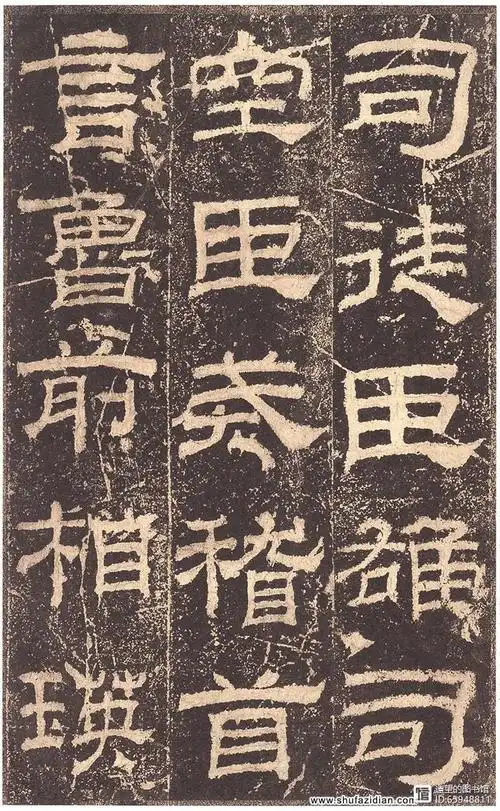 司徒臣雄司
空臣戒稽首
言魯前相瑛
www.shufazidian.com
的图书馆